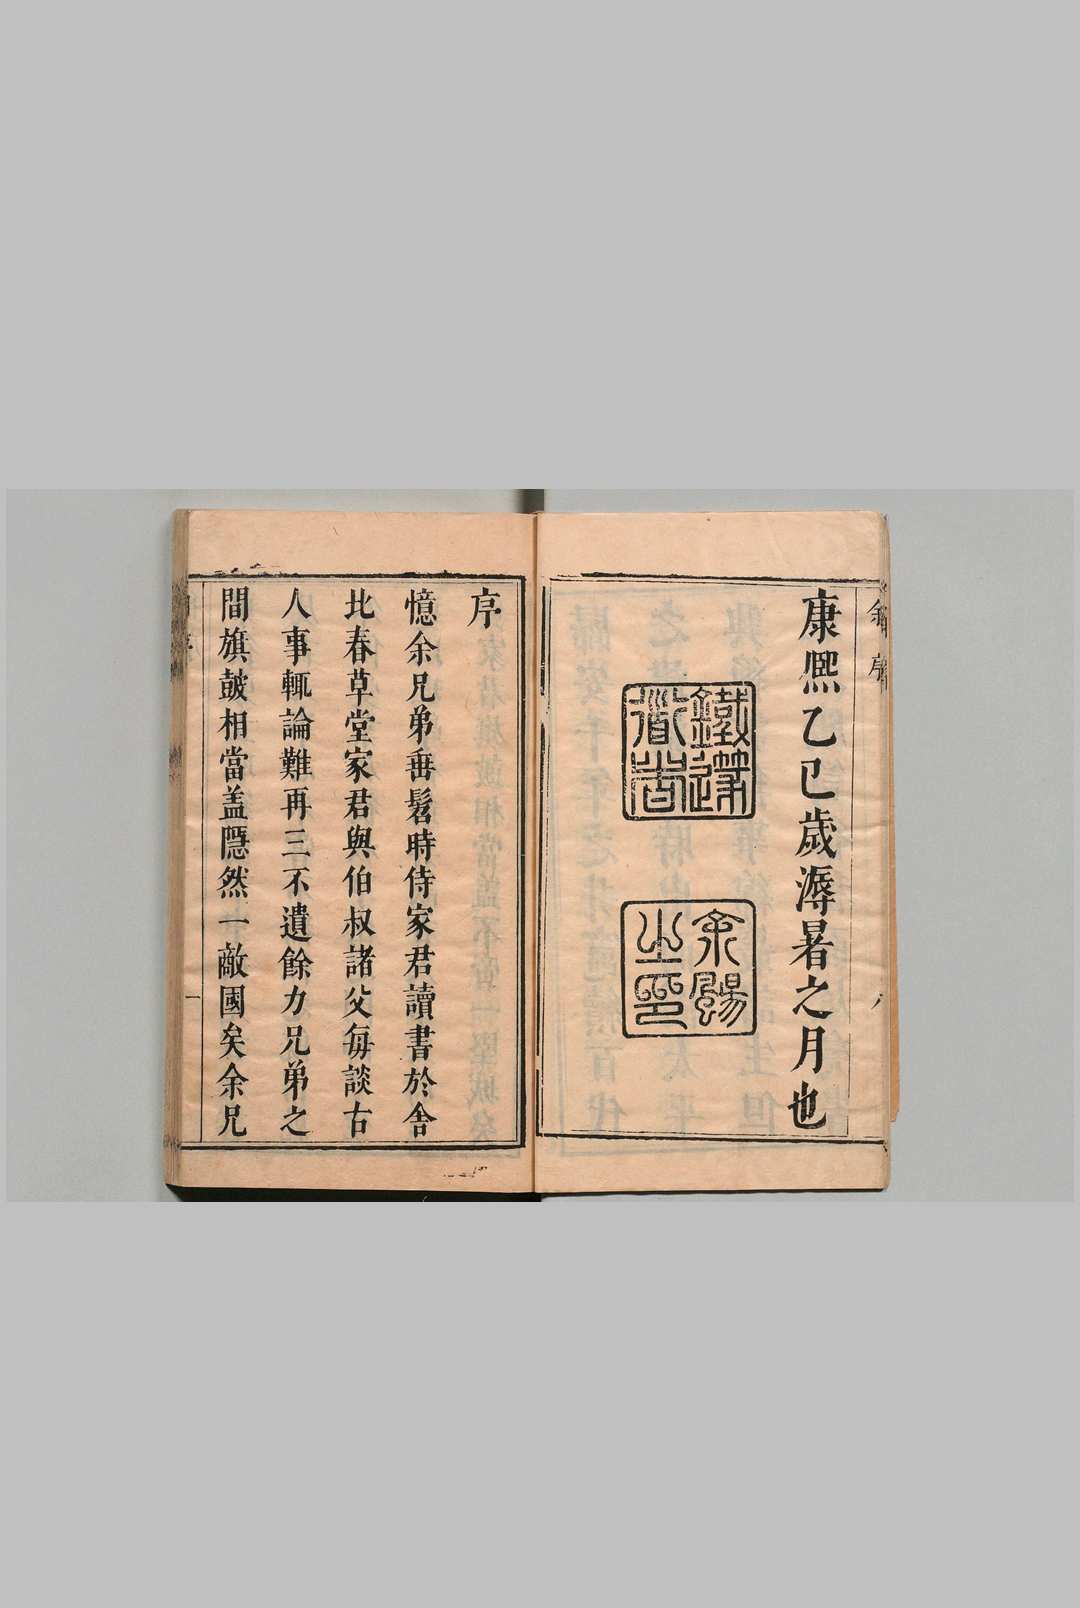 康熙乙巳歲溽暑之月也
序
憶余兄弟垂髫時侍家君讀書於舍
比春草堂家君與伯叔諸父每談古
人事輒論難再三不遺餘力兄弟之
間旗皷相當盖隱然一敵國矣余兄
一